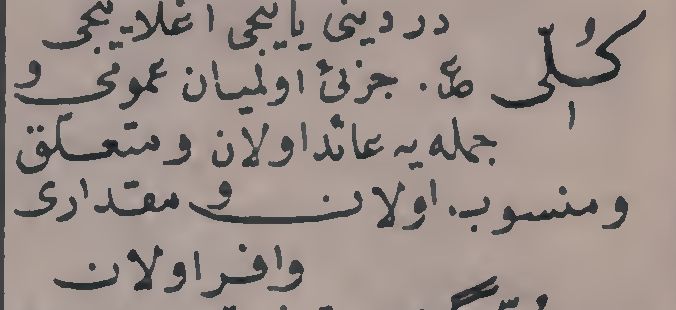 در دینی یایجی اغلایجی
كُلّی صع. جزئ اولمیان عمومی و
جمله یه عائد اولان و متعلق
و منسوب اولان و مقداری
وافر اولان